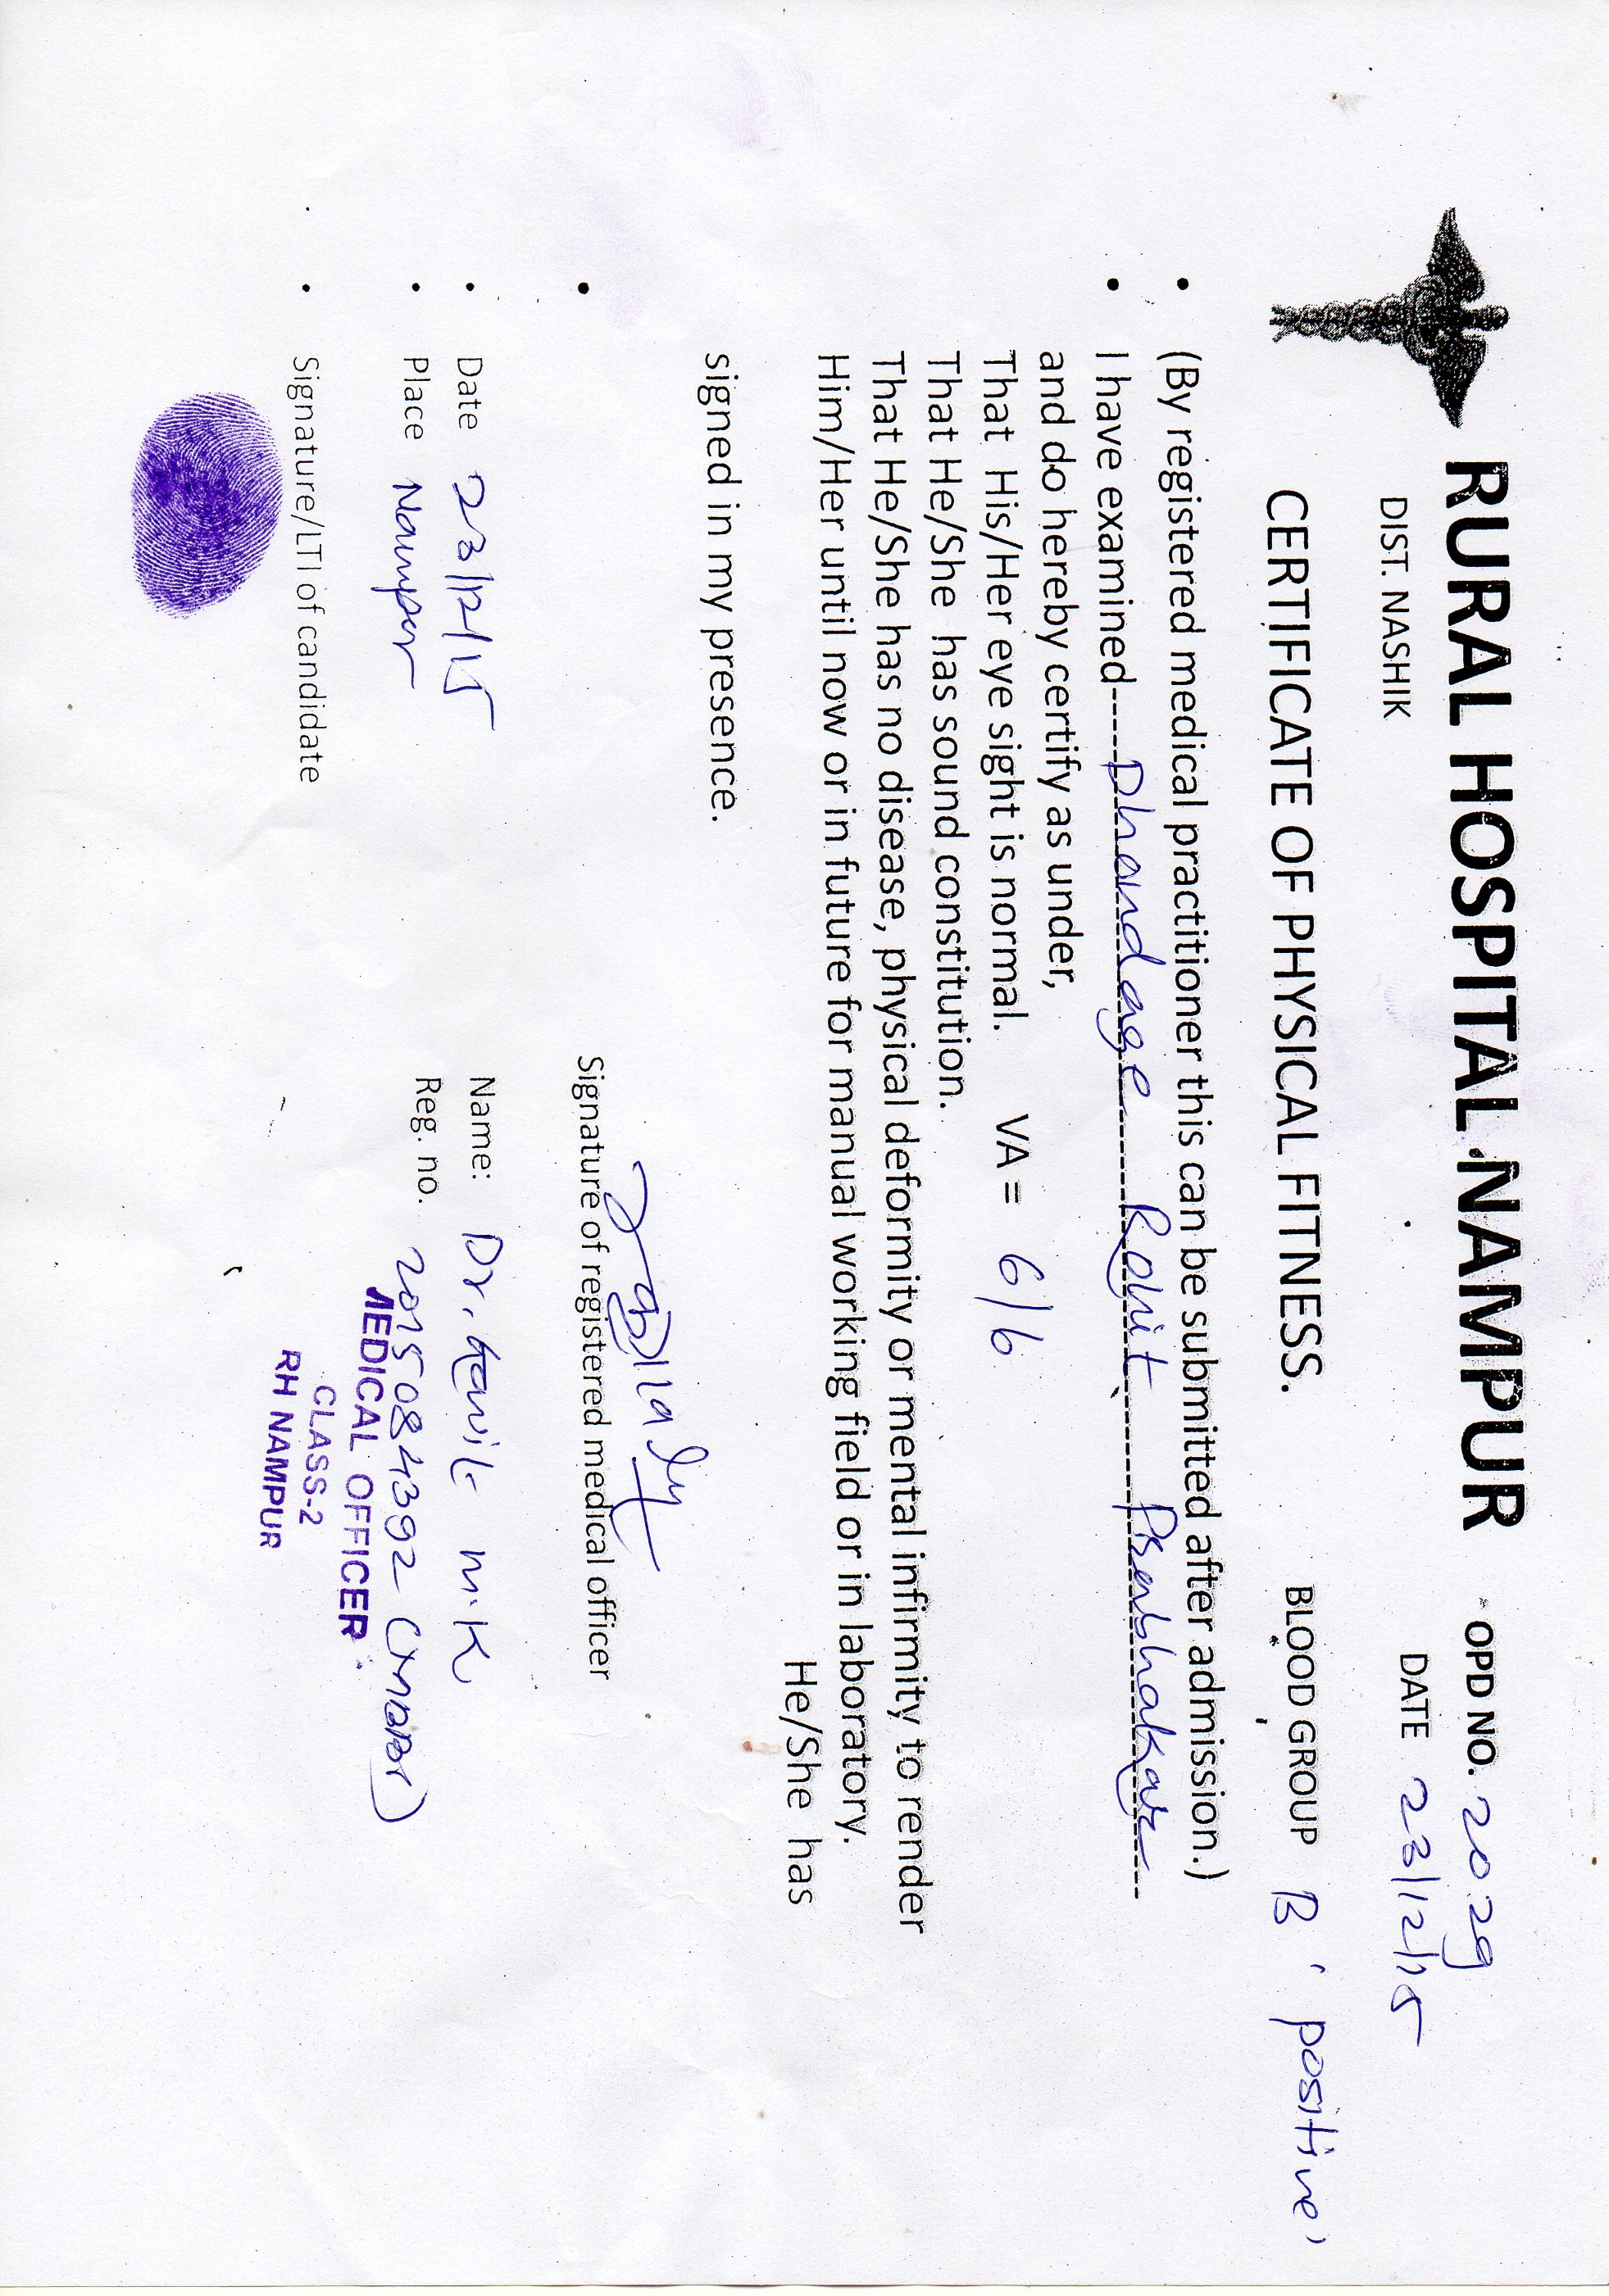 RURAL HOSPITAL NAMPUR OPD NO. 2029
DIST. NASHIK DATE 23/12/15
CERTIFICATE OF PHYSICAL FITNESS. BLOOD GROUP B 'positive'
• (By registered medical practitioner this can be submitted after admission.)
• I have examined Dhondage Rohit Prabhakar
and do hereby certify as under,
That His/Her eye sight is normal. VA = 6/6
That He/She has sound constitution.
That He/She has no disease, physical deformity or mental infirmity to render
Him/Her until now or in future for manual working field or in laboratory.
He/She has
signed in my presence.
• Signature of registered medical officer
• Date 23/12/15 Name: Dr. M.K
• Place Nampur Reg. no. 2015084392
MEDICAL OFFICER
CLASS-2
RH NAMPUR
• Signature/LTI of candidate